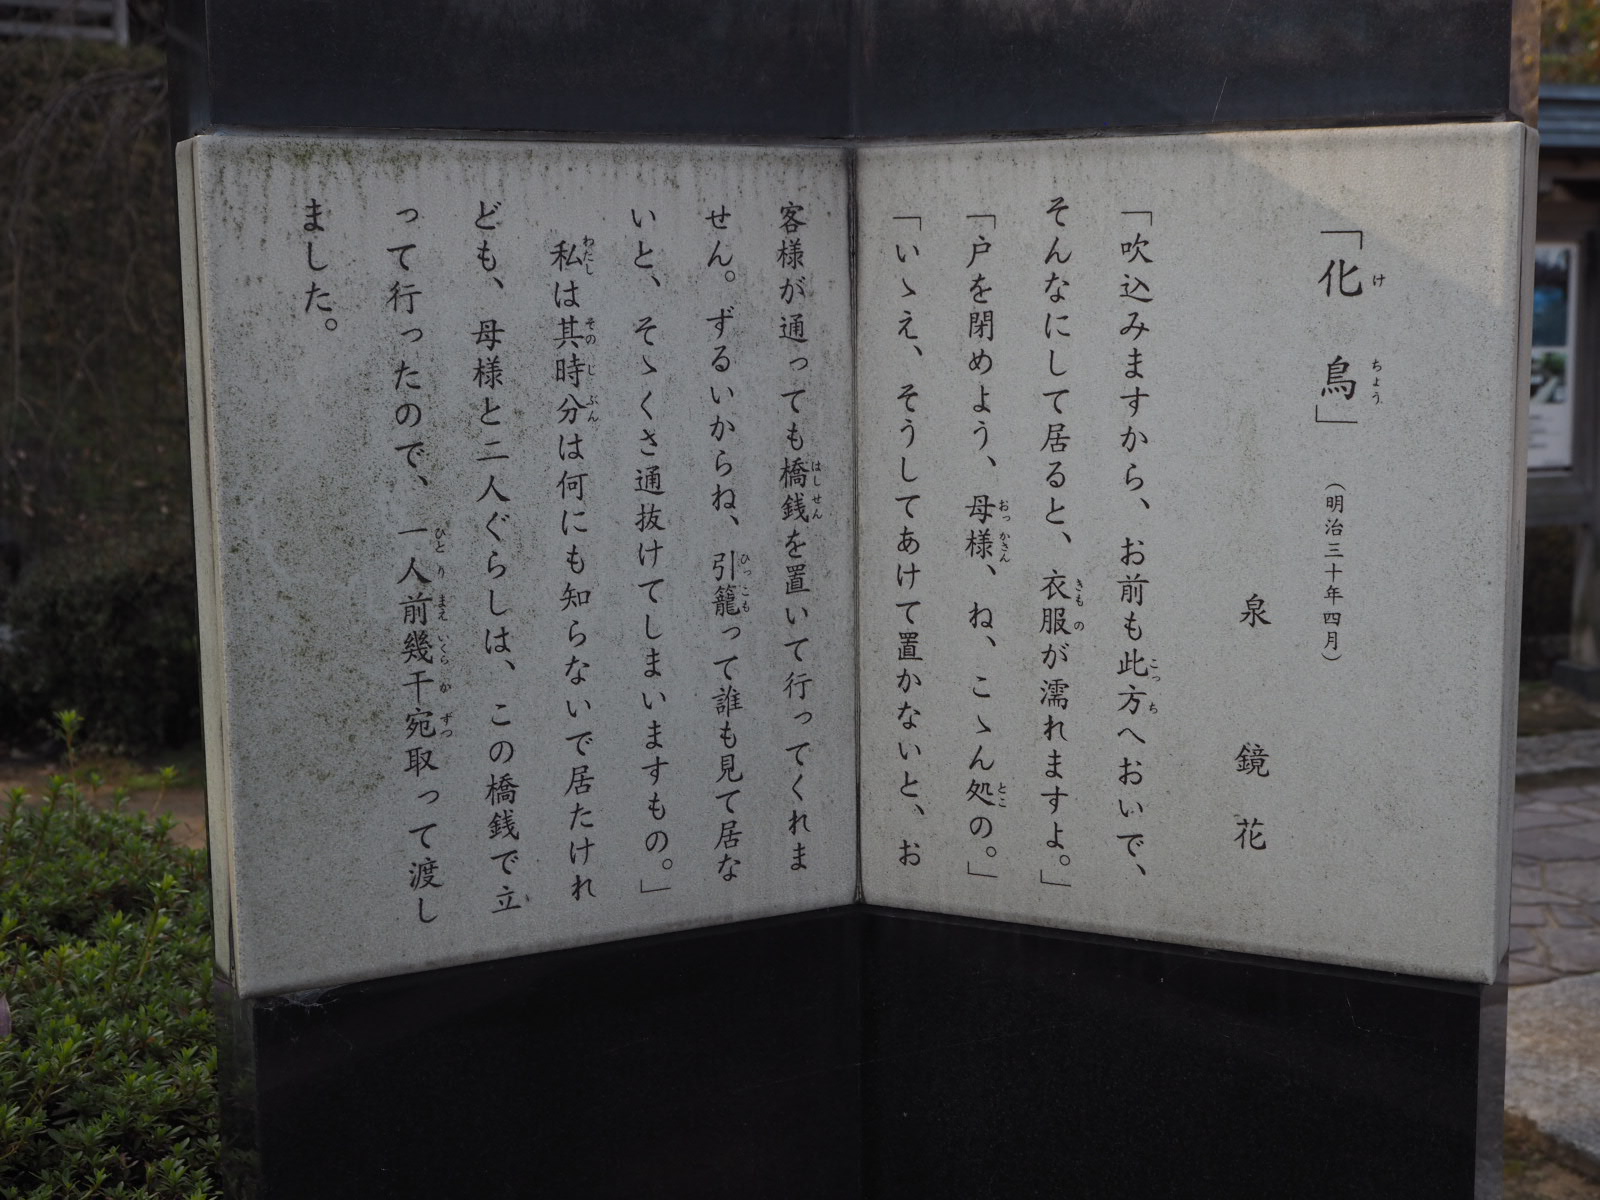 「化鳥」（明治三十年四月）
泉 鏡花
「吹込みますから、お前も此方へおいで、
そんなにして居ると、衣服が濡れますよ。」
「戸を閉めよう、母様、ね、こゝん処の。」
「いゝえ、そうしてあけて置かないと、お
客様が通っても橋銭を置いて行ってくれま
せん。ずるいからね、引籠って誰も見て居な
いと、そゝくさ通抜けてしまいますもの。」
私は其時分は何にも知らないで居たけれ
ども、母様と二人ぐらしは、この橋銭で立
って行ったので、一人前幾干宛取って渡し
ました。